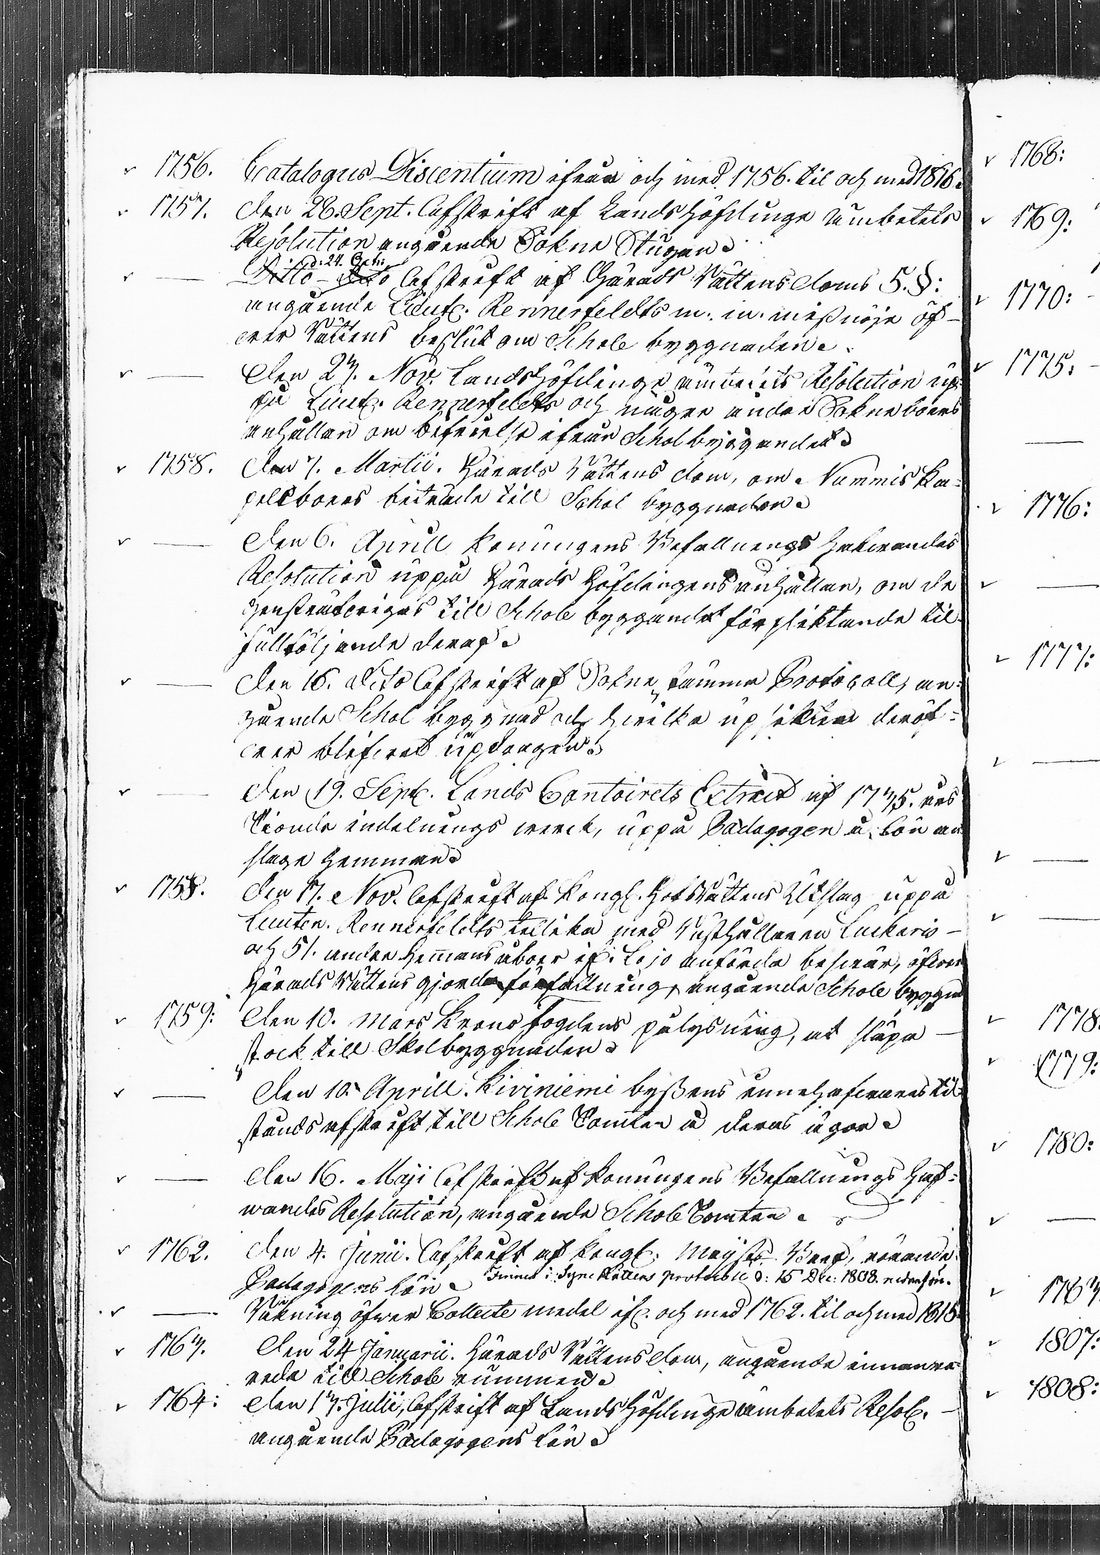 1756. Catalogus Discentium ifrån och med 1756. til och med 1816.
1757. Den 28. Sept. Afskrift af Landshöfdinge Embetets
Resolution angående Sokne Stugan
d. 24. Oct:
Ditto Afskrift af Härads Rättens doms 5. §:
angående Lieut. Rennerfeldts m. m. missnöje öf-
ver Rättens beslut om Schole byggnaden.
— Den 27. Nov. Landshöfdinge embetets Resolution up-
på Lieut. Rennerfeldts och någre andre Sokneboers
anhållan om befrielse ifrån Scholbyggnaden
1758. Den 7. Martii. Härads Rättens dom, om Nummis Ka-
pellboers biträde till Schol byggnaden
— Den 6. Aprill Konungens Befallnings hafvandes
Resolution uppå Härads Höfdingens anhållan, om de
gensträfvigas till Schole byggandet förpliktande til
fullföljande deraf
— Den 16. dito Afskrift af Sokne stämmo Protocoll, an-
gående Schol byggnad och hvilka upsikten deröf-
ver blifvet updragen
— Den 19. Sept. Lands Contoirets Extract af 1775. års
Tionde indelnings verck, uppå Pædagogens lön an
slage hemman
1758. Den 17. Nov. Afskrift af Kongl. Hof Rättens Utslag uppå
Lieuten. Rennerfeldts tillika med Rusthållaren Luckaris
och 51. andre Hemmansåboer if: Lojo anförde besvär, öfver
Härads Rättens gjorde författning, angående Schole byggn
1759: Den 10. Mars Krono fogdens pålysning, at släpa —
stock till Skolbyggnaden
— Den 10 Aprill. Kiviniemi byssens innehafvares til-
stånds afskrift till Schole Tomten å deras ägor
— Den 16. Maji Afskrift af Konungens Befallnings Haf-
wandes Resolution, angående Schole Tomten
1762. Den 4. Junii. Afskrift af Kongl. Maij:ts Bref, rörande
Pædagogens lön
Finnes i Syne Rättens protocoll d: 15 Dec: 1808. nedanför.
— Räkning öfver Collecte medel if. och med 1762. til och med 1815
1763. Den 24 Januarii. Härads Rättens dom, angående innan re
rede till Schole rummen
1764: Den 13. Julii, Afskrift af Landshöfdinge embetets Resol.
angående Pædagogens lön
1768:
1769:
1770:
1775:
—
1776:
—
1777:
—
—
—
1778
1779:
1780:
—
1807:
1808: